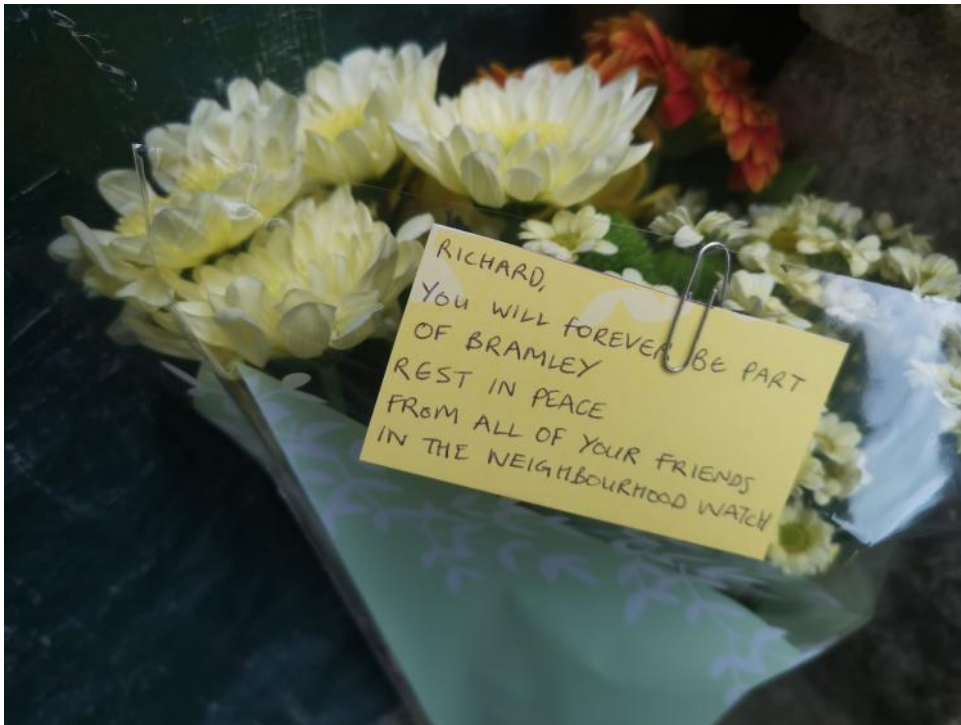 RICHARD,
YOU WILL FOREVER BE PART
OF BRAMLEY
REST IN PEACE
FROM ALL OF YOUR FRIENDS
IN THE NEIGHBOURHOOD WATCH